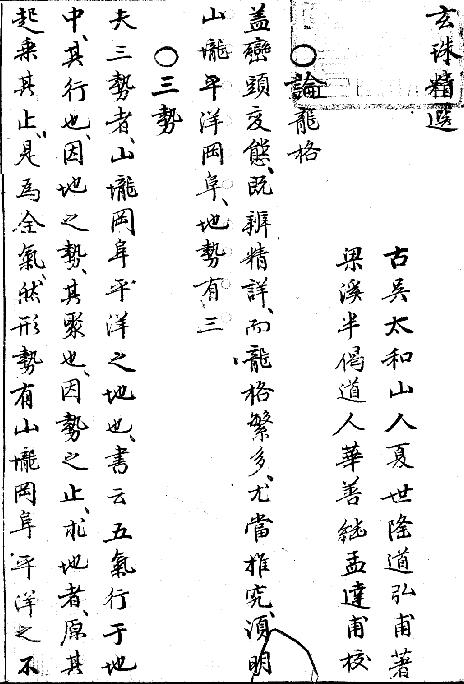 玄珠精選
古吳太和山人夏世隆道弘甫著
梁溪半偈道人華善継孟達甫校
〇論龍格
盖巒頭变態、既辨精詳、而龍格繁多、尤當推究、須明
山壠平洋岡阜、地勢有三、
〇三勢
夫三勢者、山壠岡阜平洋之地也、書云五氣行于地
中、其行也、因地之勢、其聚也、因勢之止、求地者、原其
起乘其止、是為全氣、然形勢有山壠岡阜平洋之不